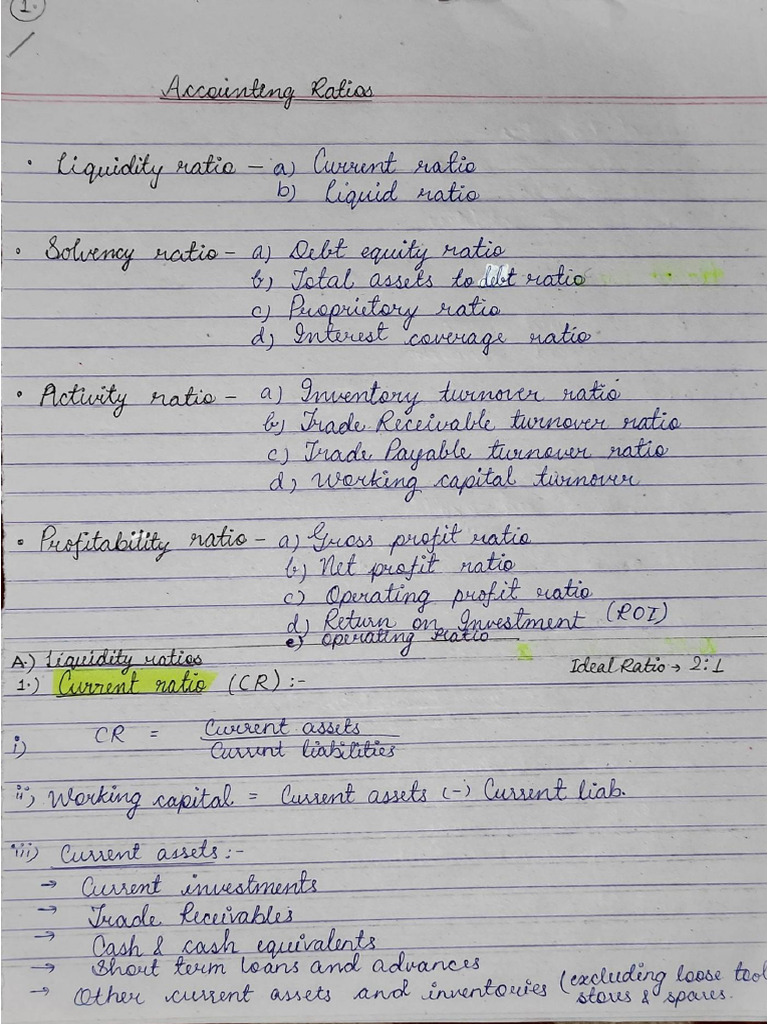 1.
Accounting Ratios
• Liquidity ratio - a) Current ratio
b) Liquid ratio
• Solvency ratio - a) Debt equity ratio
b) Total assets to debt ratio
c) Proprietory ratio
d) Interest coverage ratio
• Activity ratio - a) Inventory turnover ratio
b) Trade Receivable turnover ratio
c) Trade Payable turnover ratio
d) Working capital turnover
• Profitability ratio - a) Gross profit ratio
b) Net profit ratio
c) Operating profit ratio
d) Return on Investment (ROI)
e) operating ratio
A.) Liquidity ratios
1.) Current ratio (CR) :- Ideal Ratio → 2:1
i) CR = Current assets
Current liabilities
ii) Working capital = Current assets (-) Current liab.
iii) Current assets :-
→ Current investments
→ Trade Receivables
→ Cash & cash equivalents
→ Short term loans and advances
→ Other current assets and inventories (excluding loose tool
stores & spares.